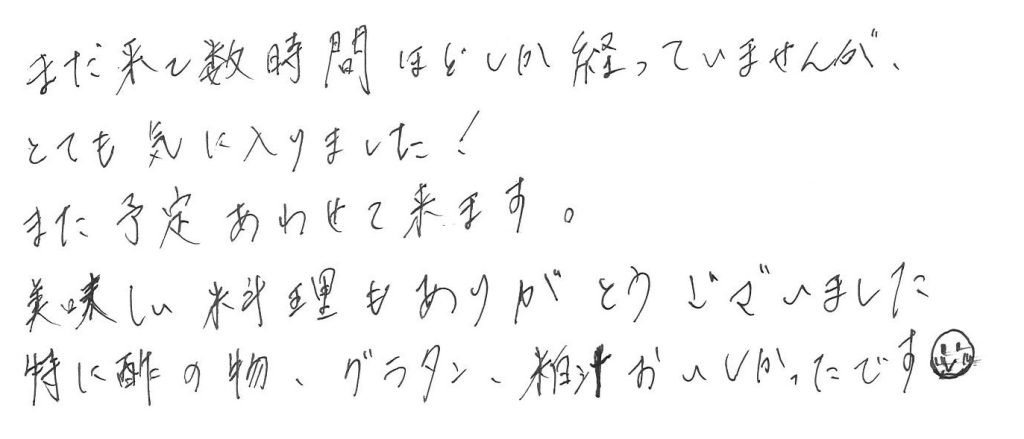 まだ来て数時間ほどしか経っていませんが、
とても気に入りました!
また予定あわせて来ます。
美味しい料理もありがとうございました
特に酢の物、グラタン、粕汁おいしかったです